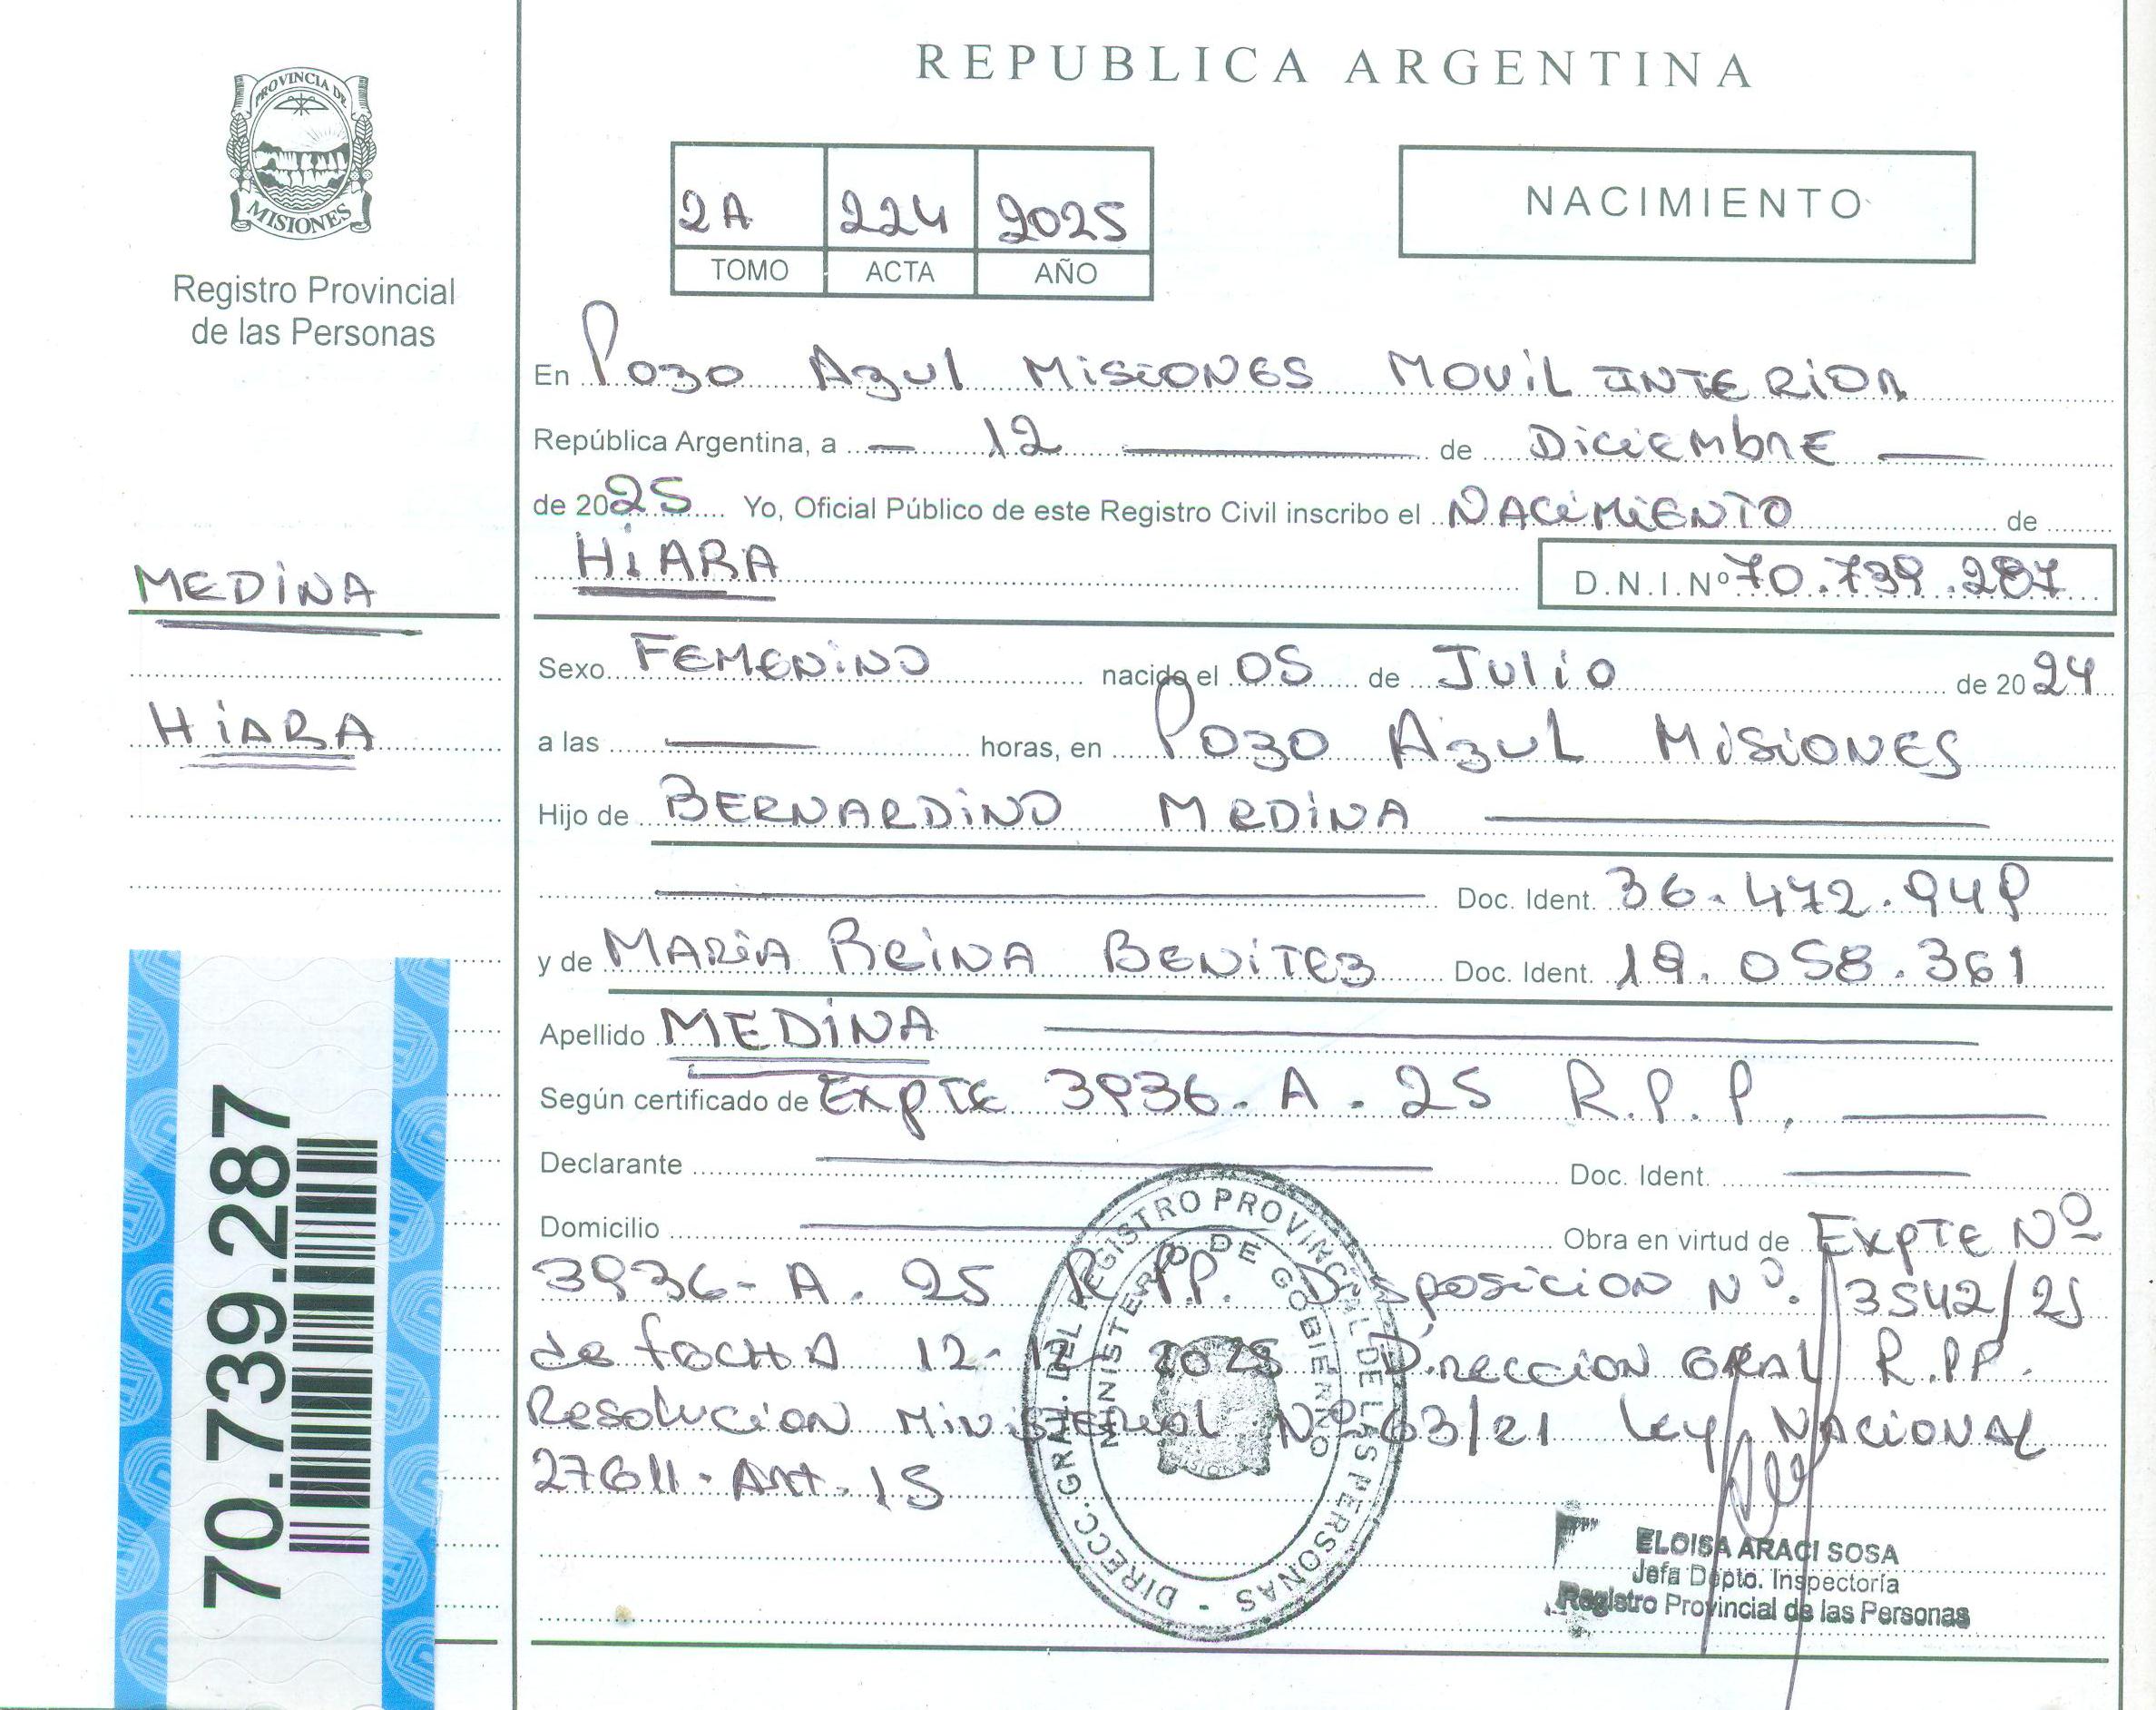 PROVINCIA DE
MISIONES
Registro Provincial
de las Personas
MEDINA
HIARA
70.739.287
REPUBLICA ARGENTINA
2A 224 2025
TOMO ACTA AÑO
NACIMIENTO
En Pozo Azul Misiones Movil Interior
República Argentina, a 12 de Diciembre
de 2025 Yo, Oficial Público de este Registro Civil inscribo el Nacimiento de
HIARA D.N.I.Nº 70.739.287
Sexo Femenino nacido el 05 de Julio de 2024
a las horas, en Pozo Azul Misiones
Hijo de Bernardino Medina
Doc. Ident. 36.472.949
y de Maria Reina Benitez Doc. Ident. 19.058.361
Apellido MEDINA
Según certificado de Expte 3936-A-25 R.P.P.
Declarante Doc. Ident.
Domicilio Obra en virtud de Expte Nº
3936-A-25 R.P.P. Disposicion Nº 3542/25
de fecha 12-12-2025 Direccion Gral R.P.P.
Resolucion Ministerial Nº 63/21 Ley Nacional
27611-Art-15
DIRECC. GRAL. DEL REGISTRO PROVINCIAL DE LAS PERSONAS -
MINISTERIO DE GOBIERNO
ELOISA ARACI SOSA
Jefa Dpto. Inspectoría
Registro Provincial de las Personas